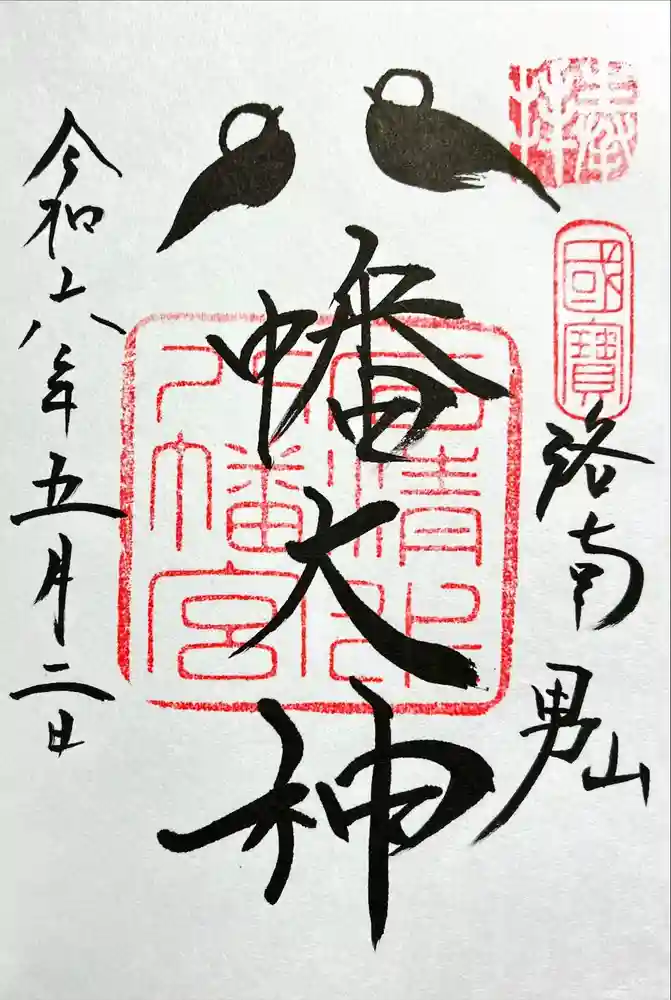 奉拝
國寶
洛南
男山
八幡大神
八幡宮
令和六年五月二日